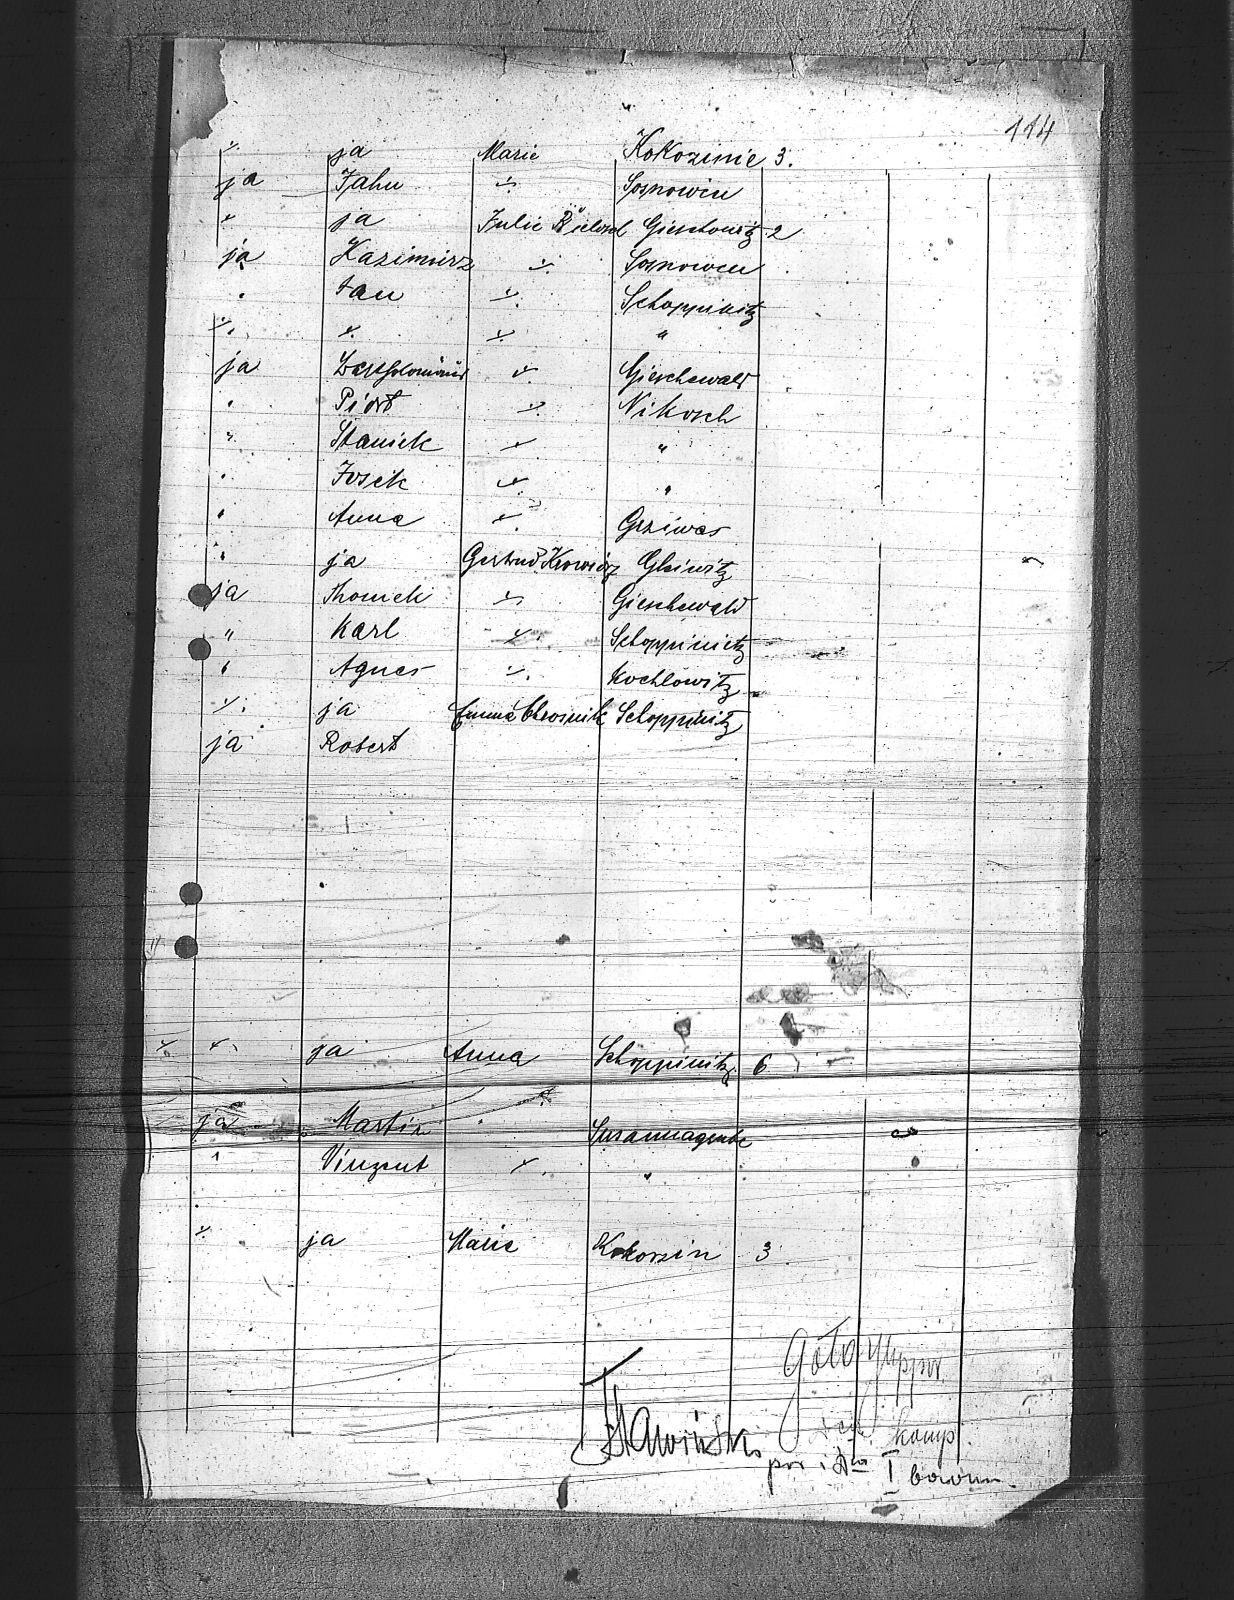 114
„ ja Marie Kokozinie 3.
ja Jahn „ Sosnowicu
„ ja Julie Gieschowitz 2
ja Kazimierz „ Sosnowcu
„ Jan „ Schoppinitz
„ „ „ „
ja Bartholomäus „ Gieschewald
„ Piotr „ Nikosch
„ Stanick „ „
„ Josek „ „
„ Anna „ Grziwas
„ ja Gertrud Gleiwitz
ja Thomek „ Gieschewald
„ Karl „ Schoppinitz
„ Agnes „ Kochlowitz
„ ja Emma Schoppinitz
ja Robert
„ „ ja Anna Schoppinitz 6
ja Martin Susannagrube
„ Vinzent „ „
„ ja Marie Kokoszin 3
komp.
I